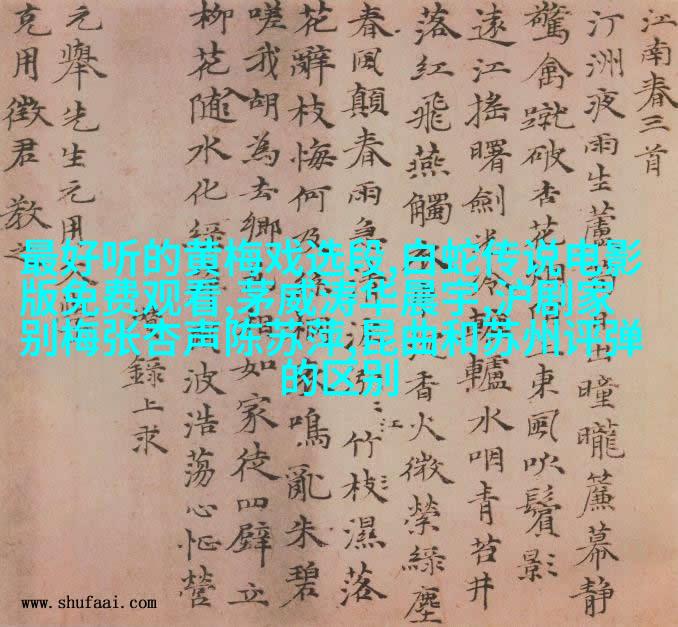 江南春三首
汀洲夜雨生蘆 曈曨簾幕靜
驚禽蹴破杏花 東風吹鬢影
遠江搖曙劍 冷轆轤水咽青苔井
落紅飛燕觸 香火微縈綠塵
春風顛春雨急 江竹枝濕落
花辭枝悔何及 鳴亂朱碧
嗟我胡為去鄉 如家徒四壁立
柳花隨水化綠 波浩蕩心怔營
錄上求
元舉先生元用
克用徵君教之
最好听的黄梅戏选段,白蛇传说电影
版免费观看,茅威涛华晨宇,沪剧家
别梅张杏声陈苏萍,昆曲和苏州评弹
的区别
www.shufaai.com